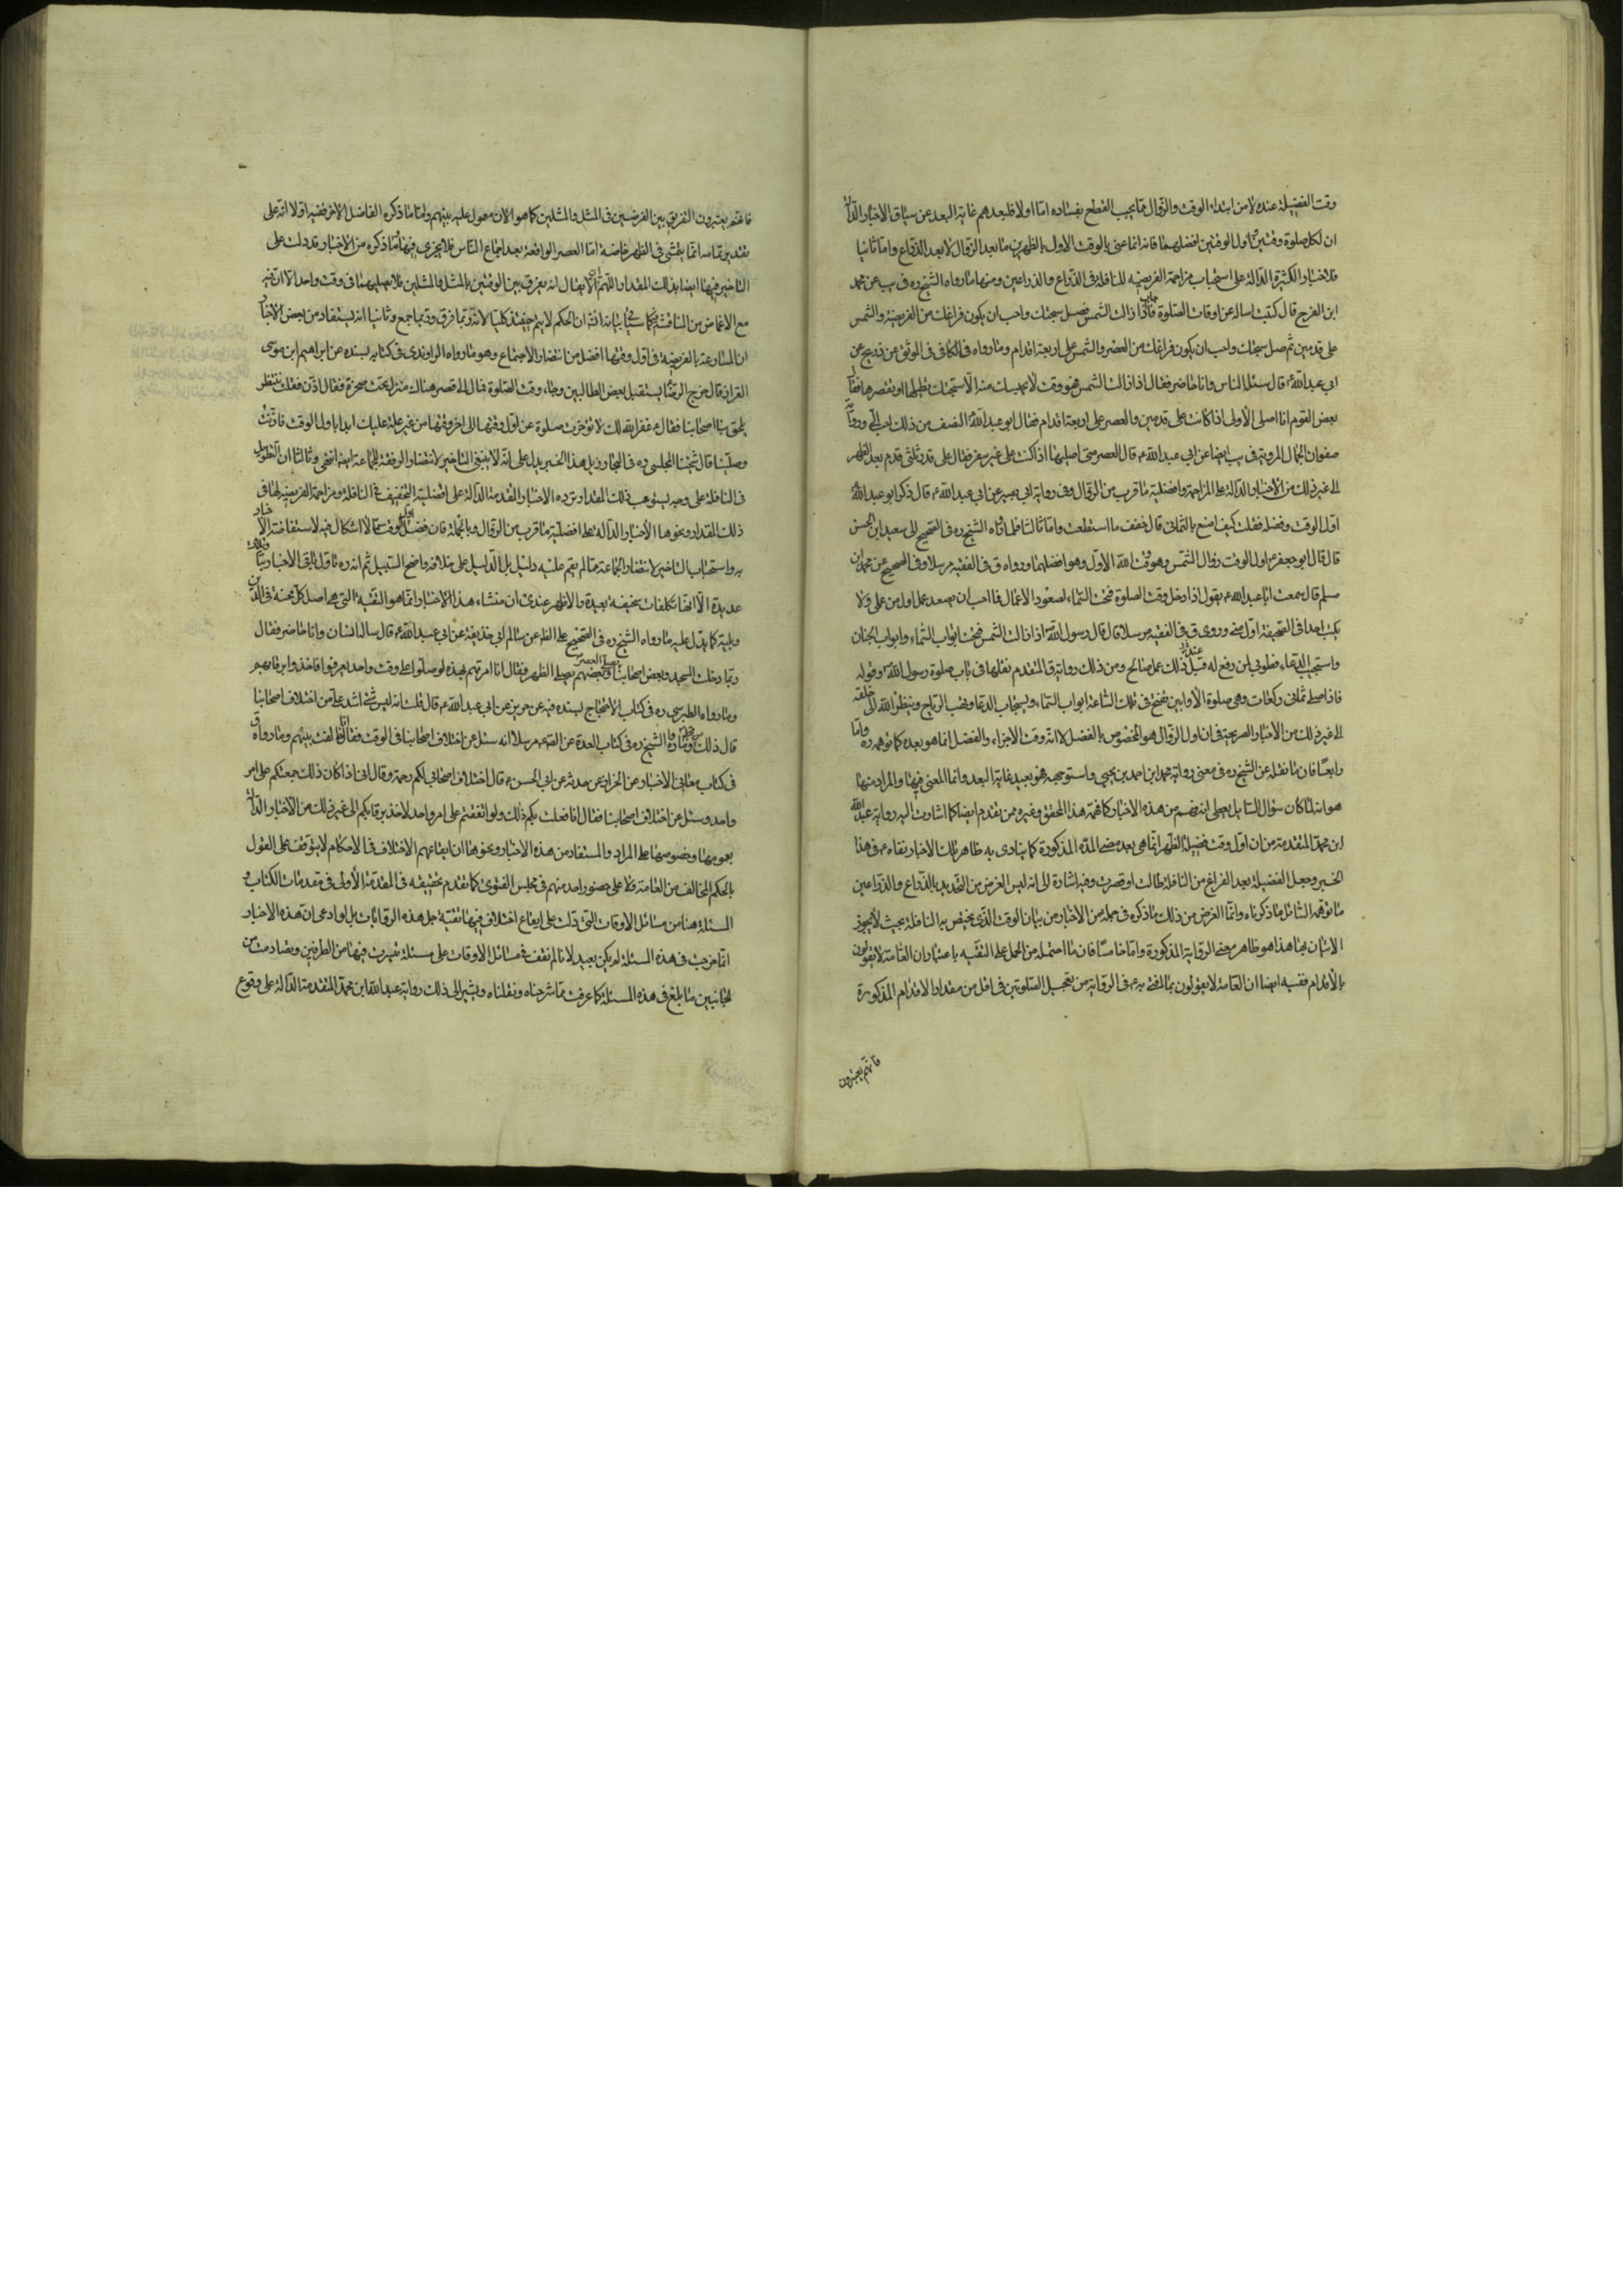 وقت الفضيلة عنده لا من ابتداء الوقت والزوال مما يجب القطع بفساده اما اولا فلبعدهم غاية البعد عن سياق الاخبار الدالة
ان لكل صلوة وقتين واول الوقتين افضلهما فانه انما عنى بالوقت الاول بالظهرين ما بعد الزوال لا بعد الذراع واما ثانيا
فلاخبار الكثيرة الدالة على استحباب مزاحمة الفريضة للنافلة في الذراع والذراعين ومنها ما رواه الشيخ ره في يب عن محمد
ابن الفرج قال كتبت اساله عن اوقات الصلوة فاجاب اذا زالت الشمس فصل سبحتك واحب ان يكون فراغك من الفريضة والشمس
على قدمين ثم صل سبحتك واحب ان يكون فراغك من العصر والشمس على اربعة اقدام وما رواه في الكافي في الموثق عن ذريح عن
ابي عبد الله ع قال سئل الناس وانا حاضر فقال اذا زالت الشمس فهو وقت لا يحبسك منه الا سبحتك تطيلها او تقصرها فقال
بعض القوم انا اصلى الاولى اذا كانت على قدمين والعصر على اربعة اقدام فقال ابو عبد الله ع النصف من ذلك احب الي ورواية
صفوان الجمال المروية في يب ايضا عن ابي عبد الله ع قال العصر متى اصليها اذا كنت على غير سفر فقال على قدر ثلثي قدم بعد الظهر
الى غير ذلك من الاخبار الدالة على المزاحمة وافضلية ما قرب من الزوال وفي رواية ابي بصير عن ابي عبد الله ع قال ذكر ابو عبد الله ع
اول الوقت وفضله فقلت كيف اصنع بالثماني قال خفف ما استطعت واما ثالثا فلما رواه الشيخ ره في الصحيح الى سعيد ابن الحسن
قال قال ابو جعفر ع اول الوقت زوال الشمس وهو وقت الله الاول وهو افضلهما ورواه ق في الفقيه مرسلا وفي الصحيح عن محمد ابن
مسلم قال سمعت ابا عبد الله ع يقول اذا دخل وقت الصلوة فتحت السماء لصعود الاعمال فما احب ان يصعد عمل اول من عملي ولا
يكتب احد في الصحيفة اول مني وروى ق في الفقيه مرسلا قال قال رسول الله ص اذا زالت الشمس فتحت ابواب السماء وابواب الجنان
واستجيب الدعاء فطوبى لمن رفع له عند ذلك عمل صالح ومن ذلك رواية ق المتقدم نقلها في باب صلوة رسول الله ص وقوله
فاذا صلى ثماني ركعات وهي صلوة الاوابين تفتح في تلك الساعة ابواب السماء ويستجاب الدعاء وتهب الرياح وينظر الله الى خلقه
الى غير ذلك من الاخبار الصريحة في ان اول الزوال هو المخصوص بالفضل لا انه وقت الاجزاء والفضل انما هو بعده كما توهمه ره واما
رابعا فان ما نقله عن الشيخ ره في معنى رواية محمد ابن احمد بن يحيى واستوجهه فهو بعيد غاية البعد وانما المعنى فيها والمراد منها
هو انه لما كان سؤال السايل يعطى انه فهم من هذه الاخبار كما فهمه هذا المحقق وغيره ممن تقدم ايضا كما اشارت اليه رواية عبد الله
ابن محمد المتقدمة من ان اول وقت فضيلة الظهر انما هي بعد مضي المدة المذكورة كما ينادى به ظاهر تلك الاخبار نفاه ع في هذا
الخبر وجعل الفضيلة بعد الفراغ من النافلة طالت او قصرت وفيه اشارة الى انه ليس الغرض من التحديد بالذراع والذراعين
ما توهمه السائل مما ذكرناه وانما الغرض من ذلك ما ذكره في جملة من الاخبار من بيان الوقت الذي يختص به النافلة بحيث لا يجوز
الاتيان بها هذا هو ظاهر معنى الرواية المذكورة واما خامسا فان ما احتمله من الحمل على التقيه باعتبار ان العامة لا يقولون
بالاقدام ففيه ايضا ان العامة لا يقولون بما افتى به ع في الرواية من تعجيل الصلوتين في اقل من مقدار الاقدام المذكورة
فانهم يعتبرون
فانهم يعتبرون التفريق بين الفرضين في المثل والمثلين كما هو الان معمول عليه بينهم واما ما ذكره الفاضل الاخر ففيه اولا انه على
تقدير تمامه انما يتمشى في الظهر خاصة اما العصر الواقعة بعد اجتماع الناس فلا يجري فيها ما ذكره من الاخبار قد دلت على
التاخير فيها ايضا بذلك المقدار اللهم الا ان يقال انه يفرق بين الوقتين بالمثل والمثلين فلا يصليهما في وقت واحد الا ان فيه
مع الاغماض من المناقشة فيه كما سيأتي بيانه انش ان الحكم لا يتم حينئذ كليا لانه ربما فرق وربما جمع وثانيا انه يستفاد من بعض الاخبار
ان المسارعة بالفريضة في اول وقتها افضل من انتظار الاجتماع وهو ما رواه الراوندي في كتابه بسنده عن ابراهيم ابن موسى
القزاز قال خرج الرضا ع يستقبل بعض الطالبيين وجاء وقت الصلوة فمال الى قصر هناك فنزل تحت صخرة فقال اذن فقلت ننتظر
يلحق بنا اصحابنا فقال ع غفر الله لك لا تؤخرن صلوة عن اول وقتها الى اخر وقتها من غير علة عليك ابدا باول الوقت فاذنت
وصلينا قال شيخنا المجلسي ره في البحار ذيل هذا الخبر يدل على انه لا ينبغي التاخير لانتظار الرفقة للجماعة ايضا انتهى وثالثا ان التطويل
في النافلة على وجه يستوعب ذلك المقدار ترده الاخبار المتقدمة الدالة على افضلية التخفيف في النافلة ومزاحمة الفريضة لها في
ذلك المقدار ونحوها الاخبار الدالة على افضلية ما قرب من الزوال وبالجملة فان فضل اول الوقت مما لا اشكال فيه لاستفاضة الاخبار
به واستحباب التاخير لانتظار الجماعة مما لم يقم عليه دليل بل الدليل على خلافه واضح السبيل ثم انه ره تاول باقي الاخبار بتاويلات
عديدة الا انها تكلفات سخيفة بعيدة والاظهر عندي ان منشاء هذا الاخبار انما هو التقية التي هي اصل كل محنة في الدين
وبلية كما يدل عليه ما رواه الشيخ ره في الصحيح على الظ عن سالم ابي خديجة عن ابي عبد الله ع قال ساله انسان وانا حاضر فقال
ربما دخلت المسجد وبعض اصحابنا يصلى العصر وبعضهم يصلى الظهر فقال انا امرتهم بهذه لو صلوا على وقت واحد لعرفوا فاخذوا برقابهم
وما رواه الطبرسي ره في كتاب الاحتجاج بسنده فيه عن حريز عن ابي عبد الله ع قال قلت انه ليس شئ اشد علي من اختلاف اصحابنا
قال ذلك من قبلي وما رواه الشيخ ره في كتاب العدة عن الصادق ع مرسلا انه سئل عن اختلاف اصحابنا في الوقت فقال انا خالفت بينهم وما رواه ق
في كتاب معاني الاخبار عن الخزاز عن من حدثه عن ابي الحسن ع قال اختلاف اصحابي لكم رحمة وقال اني اذا كان ذلك جمعتكم على امر
واحد وسئل عن اختلاف اصحابنا فقال انا فعلت بكم ذلك ولو اتفقتم على امر واحد لاخذ برقابكم الى غير ذلك من الاخبار الدالة
بعمومها وخصوصها على المراد والمستفاد من هذه الاخبار ونحوها ان ايقاعهم الاختلاف في الاحكام لا يتوقف على القول
بالحكم المخالف من العامة فلا على حضور احد منهم في مجلس الفتوى كما تقدم تحقيقه في المقدمة الاولى في مقدمات الكتاب و
المسئلة هنا من مسائل الاوقات التي دلت على ايقاع اختلاف فيها تقية جل هذه الروايات بل لو ادعى ان هذه الاخبار
انما خرجت في هذه المسئلة لم يكن بعيد لانا لم نقف في مسائل الاوقات على مسئلة تصادمت فيها من الطرفين وتصادمت من
الجانبين ما بلغ في هذه المسئلة كما عرفت مما شرحناه ونقلناه ويشير الى ذلك رواية عبد الله ابن محمد المتقدمة الدالة على وقوع